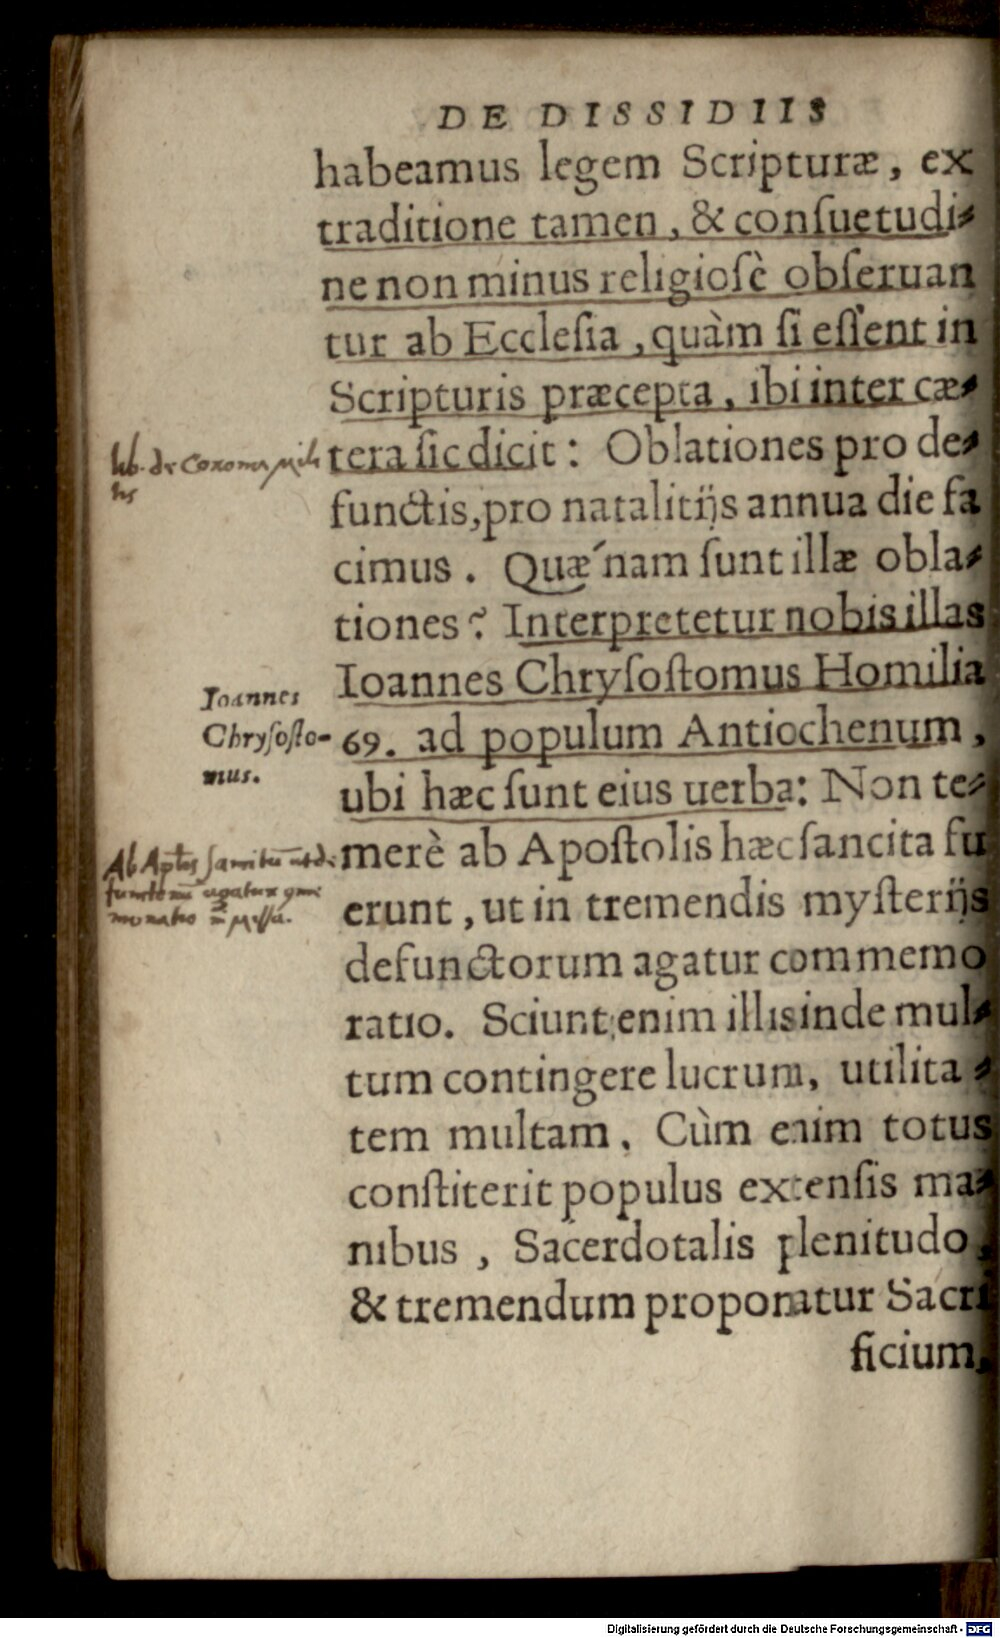 DE DISSIDIIS
habeamus legem Scripturæ, ex
traditione tamen, & conſuetudi-
ne non minus religioſè obſeruan
tur ab Eccleſia, quàm ſi eſſent in
Scripturis præcepta, ibi inter cæ-
lib. de Corona Mili
tis
tera ſic dicit: Oblationes pro de-
functis, pro natalitijs annua die fa
cimus. Quæ´nam ſunt illæ obla-
tiones? Interpretetur nobis illas
Ioannes
Chryſoſto-
mus.
Ioannes Chryſoſtomus Homilia
69. ad populum Antiochenum,
ubi hæc ſunt eius uerba: Non te-
Ab Aptis
merè ab Apoſtolis hæc ſancita fu
erunt, ut in tremendis myſterijs
defunctorum agatur commemo
ratio. Sciunt enim illis inde mul-
tum contingere lucrum, utilita-
tem multam. Cùm enim totus
conſtiterit populus extenſis ma-
nibus, Sacerdotalis plenitudo,
& tremendum proponatur Sacri
ficium,
Digitalisierung gefördert durch die Deutsche Forschungsgemeinschaft - DFG